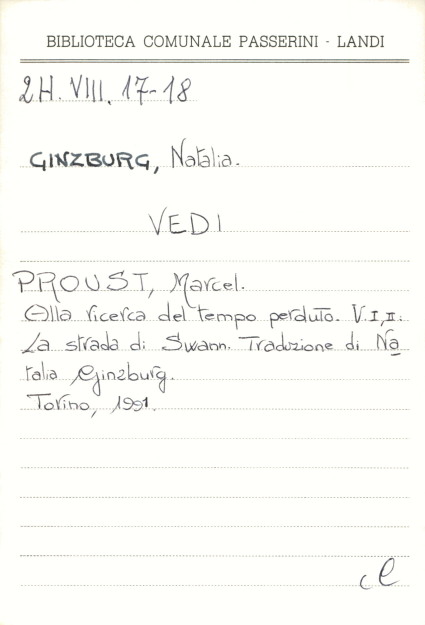 BIBLIOTECA COMUNALE PASSERINI - LANDI
2H. VIII. 17-18
GINZBURG, Natalia.
VEDI
PROUST, Marcel.
Alla ricerca del tempo perduto. V.I,II:
La strada di Swann. Traduzione di Na
talia Ginzburg.
Torino, 1991.